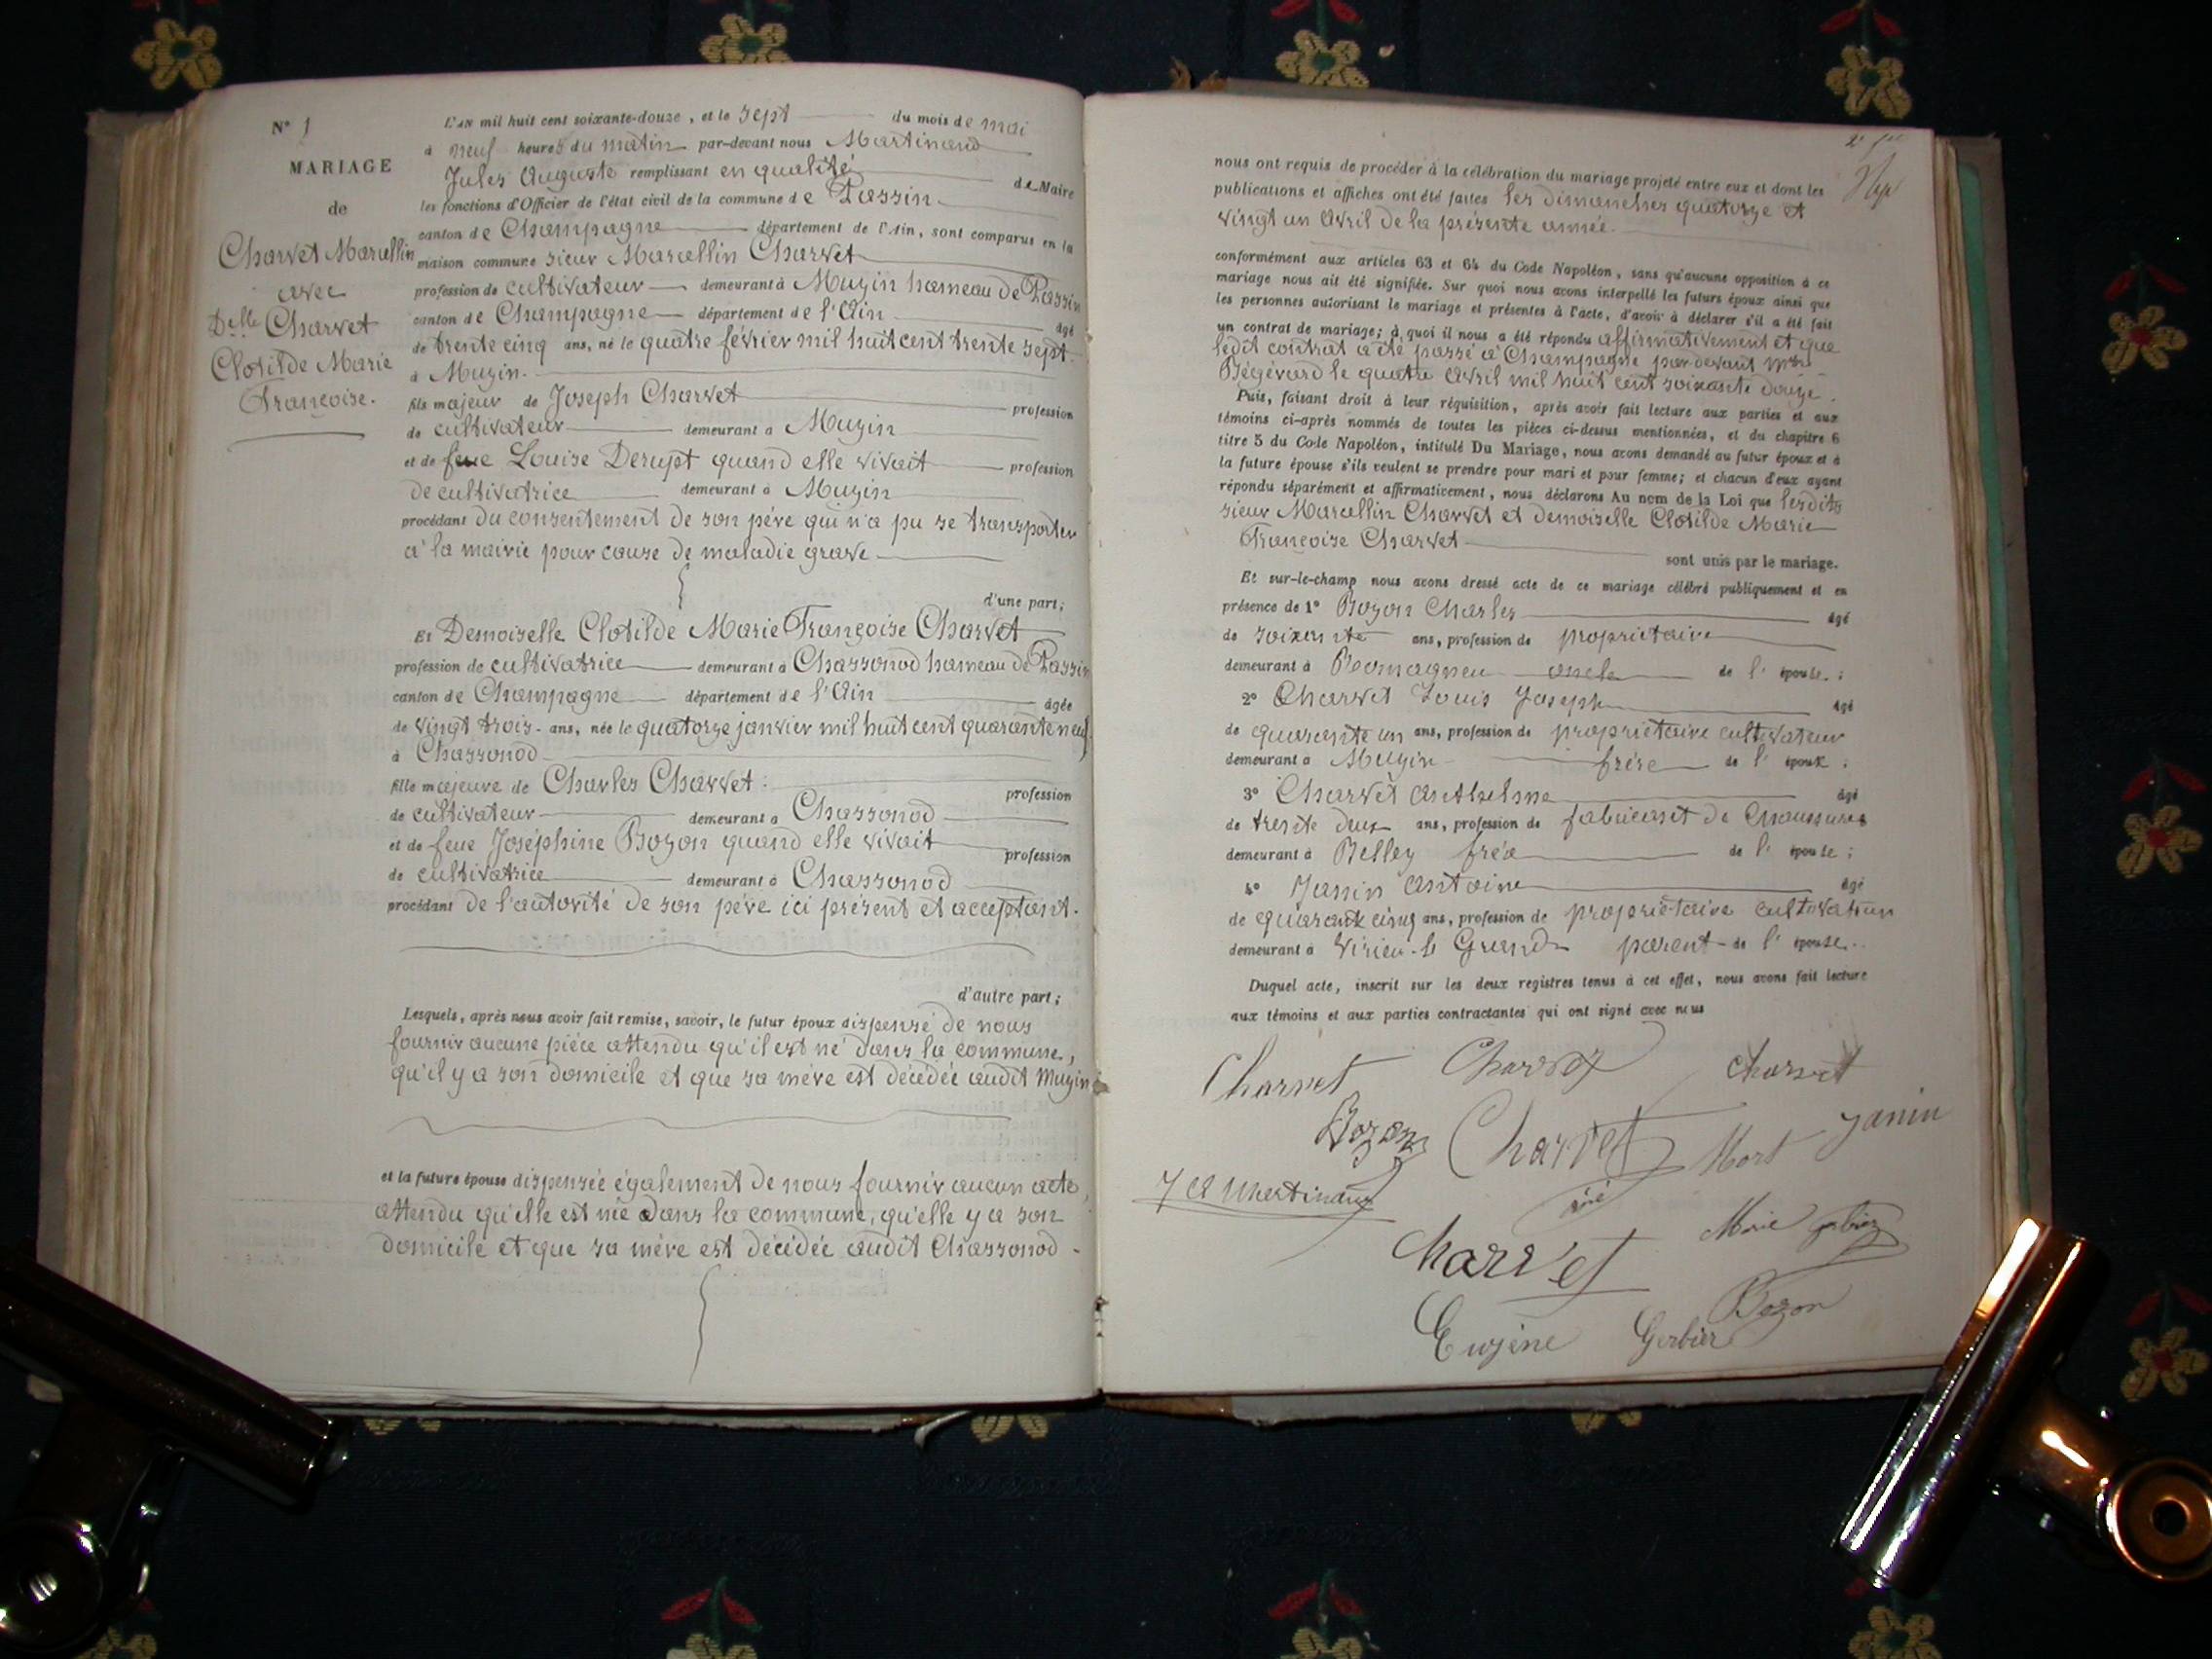 N° 1
MARIAGE
de
Charvet Marcellin
avec
Delle Charvet
Clotilde Marie
Françoise.
L'AN mil huit cent soixante-douze, et le sept du mois de mai
à neuf heures du matin par-devant nous Martinand
Jules Auguste remplissant en qualité de Maire
les fonctions d'Officier de l'état civil de la commune de Passin
canton de Champagne département de l'Ain, sont comparus en la
maison commune sieur Marcellin Charvet
profession de cultivateur demeurant à Muzin hameau de Passin
canton de Champagne département de l'Ain âgé
de trente cinq ans, né le quatre février mil huit cent trente sept
à Muzin.
fils majeur de Joseph Charvet profession
de cultivateur demeurant à Muzin
et de feue Louise Derupt quand elle vivait profession
de cultivatrice demeurant à Muzin
procédant du consentement de son père qui n'a pu se transporter
à la mairie pour cause de maladie grave
d'une part;
Et Demoiselle Clotilde Marie Françoise Charvet
profession de cultivatrice demeurant à Chassonod hameau de Passin
canton de Champagne département de l'Ain âgée
de vingt trois ans, née le quatorze janvier mil huit cent quarante neuf
à Chassonod
fille majeure de Charles Charvet profession
de cultivateur demeurant à Chassonod
et de feue Joséphine Bozon quand elle vivait profession
de cultivatrice demeurant à Chassonod
procédant de l'autorité de son père ici présent et acceptant.
d'autre part;
Lesquels, après nous avoir fait remise, savoir, le futur époux dispensé de nous
fournir aucune pièce attendu qu'il est né dans la commune,
qu'il y a son domicile et que sa mère est décédée audit Muzin
et la future épouse dispensée également de nous fournir aucun acte,
attendu qu'elle est née dans la commune, qu'elle y a son
domicile et que sa mère est décédée audit Chassonod
nous ont requis de procéder à la célébration du mariage projeté entre eux et dont les
publications et affiches ont été faites les dimanches quatorze et
vingt un Avril de la présente année.
conformément aux articles 63 et 64 du Code Napoléon, sans qu'aucune opposition à ce
mariage nous ait été signifiée. Sur quoi nous avons interpellé les futurs époux ainsi que
les personnes autorisant le mariage et présentes à l'acte, d'avoir à déclarer s'il a été fait
un contrat de mariage; à quoi il nous a été répondu affirmativement et que
ledit contrat a été passé à Champagne par devant
le quatre Avril mil huit cent soixante douze.
Puis, faisant droit à leur réquisition, après avoir fait lecture aux parties et aux
témoins ci-après nommés de toutes les pièces ci-dessus mentionnées, et du chapitre 6
titre 5 du Code Napoléon, intitulé Du Mariage, nous avons demandé au futur époux et à
la future épouse s'ils veulent se prendre pour mari et pour femme; et chacun d'eux ayant
répondu séparément et affirmativement, nous déclarons Au nom de la Loi que lesdits
sieur Marcellin Charvet et demoiselle Clotilde Marie
Françoise Charvet
sont unis par le mariage.
Et sur-le-champ nous avons dressé acte de ce mariage célébré publiquement et en
présence de 1° Bozon Charles âgé
de soixante ans, profession de propriétaire
demeurant à oncle de l'épouse;
2° Charvet Louis Joseph âgé
de quarante un ans, profession de propriétaire cultivateur
demeurant à Muzin frère de l'époux;
3° Charvet Anthelme âgé
de trente deux ans, profession de fabricant de Chaussures
demeurant à Belley frère de l'épouse;
4° Janin Antoine âgé
de quarante cinq ans, profession de propriétaire cultivateur
demeurant à Virieu-le Grand parent de l'épouse.
Duquel acte, inscrit sur les deux registres tenus à cet effet, nous avons fait lecture
aux témoins et aux parties contractantes qui ont signé avec nous
Charvet Charvet Charvet
Bozon Charvet Mort Janin
J A Martinand
Charvet Marie
Bozon
Eugène Gerbier